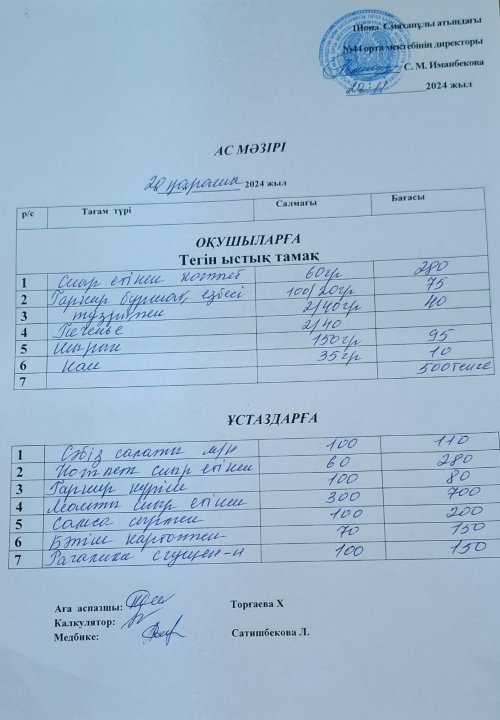 Шона Смаханұлы атындағы
№44 орта мектебінің директоры
С. М. Иманбекова
20.11 2024 жыл
АС МӘЗІРІ
20 қараша 2024 жыл
р/с Тағам түрі Салмағы Бағасы
ОҚУШЫЛАРҒА
Тегін ыстық тамақ
1 Сиыр етінен котлет 60гр 280
2 Гарнир бұршақ езбесі 100/20гр 75
3 тұздықпен 2/40гр 40
4 Печенье 2/40
5 Шырын 150гр 95
6 Нан 35гр 10
7 500теңге
ҰСТАЗДАРҒА
1 Сәбіз салаты м/н 100 110
2 Котлет сиыр етінен 60 280
3 Гарнир күріш 100 80
4 сиыр етінен 300 700
5 Самса 100 200
6 Бәтім картоппен 70 150
7 Рагалики сгущен-н 100 150
Аға аспазшы: Торғаева Х
Калкулятор:
Медбике: Сатишбекова Л.